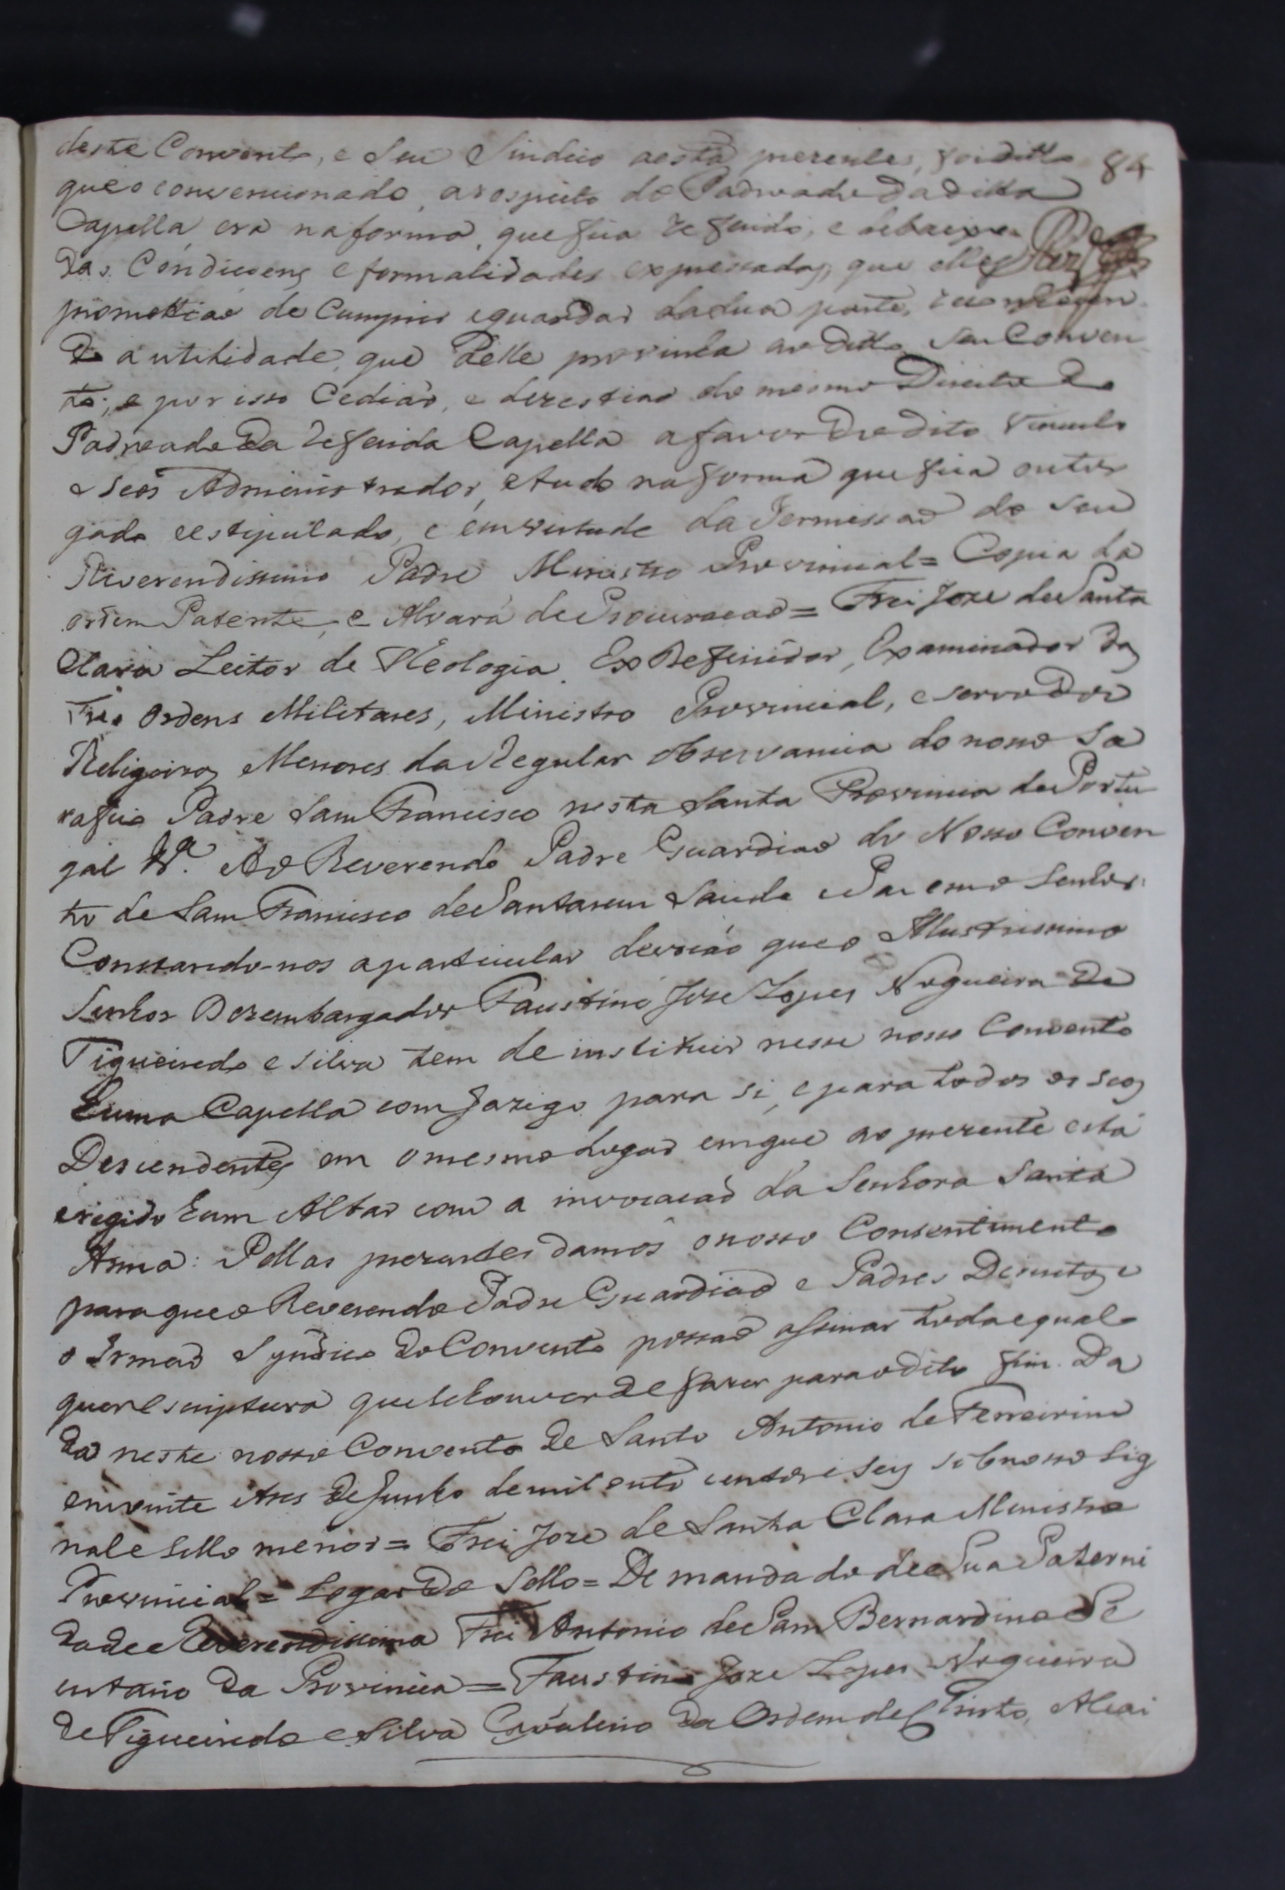 deste Convento, e Seu Sindico aesta prezentes, foi ditto 84
que o convencionado, a respeito do Padroado da ditta
Capella era na forma, que fica referido, e debaixo
das Condiçoens e formalidades expressadas, que elles
promettiaõ de Cumprir eguardar dasua parte, reconhecen
do a utilidade, que delle provinha ao ditto seu Conven
to; e por isso Cediaõ, e dezestiaõ do mesmo Direito do
Padroado da referida Capella afavor do dito Vinculo
e seos Administrador, etudo na forma que fica outor
gado eestipulado, e em virtude da Permissaõ do seu
Reverendissimo Padre Ministro Provincial = Copia da
ordem Patente, e Alvará de Procuracaõ = Frei Joze de Santa
Clara Leitor de Theologia. Ex Definidor, Examinador das
Tres Ordens Militares, Ministro Provincial, e servo dos
Religiozos Menores da Regular observancia do nosso Se
rafico Padre Sam Francisco nesta Santa Provincia de Portu
gal Vª. Ao Reverendo Padre Guardiaõ do Nosso Conven
to de Sam Francisco de Santarem Saude e Paz em o Senhor
Constando-nos a particular devoçaõ que o Illustrissimo
Senhor Dezembargador Faustino Joze Lopes Nogueira de
Figueiredo e Silva tem de instituir nesse nosso Convento
huma Capella com Jazigo para si, e para todos os seos
Descendentes em o mesmo Lugar em que ao prezente está
erigido hum Altar com a invocacaõ da Senhora Santa
Anna: Pellas prezentes damos o nosso Consentimento
para que o Reverendo Padre Guardiaõ e Padres Discretos e
o Irmaõ Syndico do Convento possaõ assinar toda e qual
quer Escriptura que se houver de fazer para o dito fim. Da
da neste nosso Convento de Santo Antonio de Ferreirim
em vinte e tres de Junho de mil outo centos e seis sob nosso sig
nal e sello menor = Frei Joze de Santa Clara Ministro
Provincial = Logar do Sello = De mandado de Sua Paterni
dade Reverendissima Frei Antonio de Sam Bernardino Se
cretario da Provincia = Faustino Joze Lopes Nogueira
de Figueiredo e Silva Cavaleiro da Ordem de Christo, Alcai